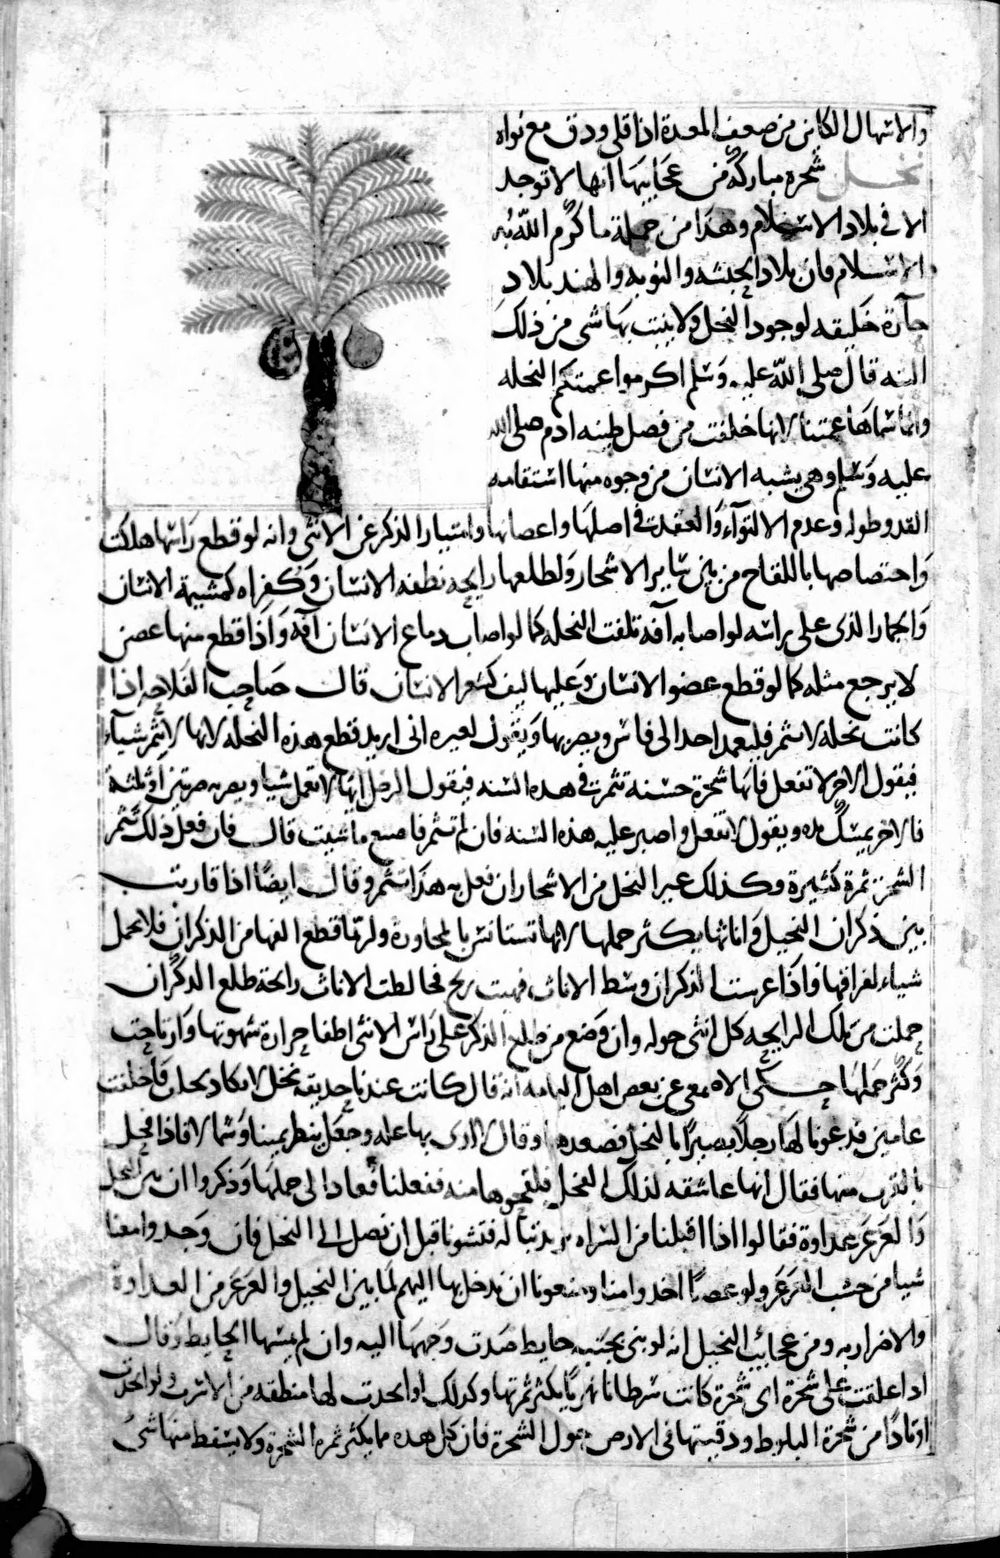 والاسهال الكاين من ضعف المعدة اذا قلى ودق مع نواه
نخل شجرة مباركة من عجايبها انها لا توجد
الا في بلاد الاسلام وهذا من جملة ما كرم الله به
الاسلام فان بلاد الحبشه والنوبه والهند بلاد
حارة خليقه لوجود النخل ولا ينبت بها شى من ذلك
البته قال صلى الله عليه وسلم اكرموا عمتكم النخله
وانما سماها عمتنا لانها خلقت من فضل طينه ادم صلى الله
عليه وسلم وهى يشبه الانسان من وجوه منها استقامه
القد وطوله وعدم الالتوآء والعقد فى اصلها واغصانها وامتياز الذكر عن الانثى وانه لو قطع راسها هلكت
واختصاصها باللقاح من بين سايرالاشجار ولطلعها رايحه نطفه الانسان وكفراه كمشيمة الانسان
والجمار الذى على راسه لواصابه آفه تلفت النخله كما لواصاب دماغ الانسان آفه واذا قطع منها غصن
لا يرجع مثله كما لو قطع عضو الانسان وعليها ليف كشعر الانسان قال صاحب الفلاحه اذا
كانت نخلة لا تثمر فليعمد احد الى فاس ويضربها ويقول لغيره انى اريد قطع هذه النخله لانها لا تثمر شيآء
فيقول الاخر لا تفعل فانها شجرة حسنه تثمر فى هذه السنه فيقول الرجل انها لا تعمل شيا ويضربه ضربتين او ثلثة
فالاخر يمسك يده ويقول لا تفعل واصبر عليه هذه السنه فان لم تثمر فاصنع ما شيت قال فان فعل ذلك تثمر
الشجر ثمرة كثيرة وكذلك غير النخل من الاشجار ان فعل به هذا تثمر وقال ايضا اذا قاربت
بين ذكران النخيل واناثها يكثر حملها لانها تستانس بالمجاورة ولربما قطع الفها من الذكران فلا تحمل
شياء لفراقها واذا غرست الذكران وسط الاناث فهبت ريح فخالطت الاناث رائحة طلع الذكران
حملت من تلك الرايحه كل انثى حوله وان وضع من طلع الذكر على راس الانثى اطفا حرارة شهوتها وارتاحت
وكثر حملها حكى الاصمعى عن بعض اهل اليمامه انه قال كانت عندنا حديقه نخل لا يكاد يحل فاخلفت
عامين فدعونا لها رجلا بصيرا بالنخل فصعدها وقال لا ارى بها عله وجعل ينظر يمينا وشمالا فاذا فحل
بالقرب منها فقال انها عاشقه لذلك النخل فلقحوها منه ففعلنا فعاد الى حملها وذكروا ان بين النخل
والعرعر عداوة فقالوا اذا اقبلنا من السراه نريد فتشونا قبل ان نصل الى النخل فان وجدوا معنا
شيا من خشب العرعر ولو عصا اخذوا منا ومنعونا ان ندخل بها اليهم لما بين النخيل والعرعر من العداوة
والاضرار به ومن عجائب النخيل انه لو بنى بجنبه حايط صدت وجهها اليه وان لم يمسها الحايط وقال
اذا علقت على شجرة اى شجرة كانت سرطانا نهريا يكثر ثمرتها وكذلك لو اتخذت لها منطقه من الاسرب ولو اتخذت
اوتادا من شجرة البلوط ودفنتها فى الارض حول الشجرة فان كل هذه مما يكثر ثمرة الشجرة ولا يسقط منها شى